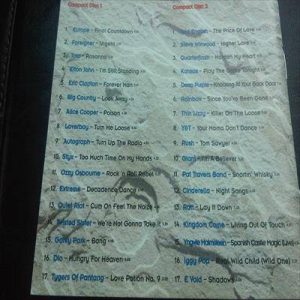 Compact Disc 1
1. Europe - Final Countdown
2. Foreigner - Urgent
3. - Rosanna
4. Elton John - I'm Still Standing
5. Eric Clapton - Forever Man
6. Big Country - Look Away
7. Alice Cooper - Poison
8. Loverboy - Turn Me Loose
9. Autograph - Turn Up The Radio
10. Styx - Too Much Time On My Hands
11. Ozzy Osbourne - Rock 'n Roll Rebel
12. Extreme - Decadence Dance
13. Quiet Riot - Cum On Feel The Noize
Twisted Sister - We're Not Gonna Take It
15. - Bang
16. Dio - Hungry For Heaven
17. Tygers Of Pantang - Love Potion No. 9
Compact Disc 2
1. - The Price Of Love
2. Steve Winwood - Higher Love
3. Quarterflash - Harden My Heart
4. Kansas - Play The Game Tonight
5. Deep Purple - Knocking At Your Back Door
6. Rainbow - Since You've Been Gone
7. Thin Lizzy - Killer On The Loose
8. Y&T - Your Mama Don't Dance
9. Rush - Tom Sawyer
10. - I'm A Believer
11. Pat Travers Band - Snortin' Whiskey
12. Cinderella - Night Songs
13. Ratt - Lay It Down
14. Kingdom Come - Living Out Of Touch
15. Yngwie Malmsteen - Spanish Castle Magic (Live)
16. Iggy Pop - Real Wild Child (Wild One)
17. E'Void - Shadows